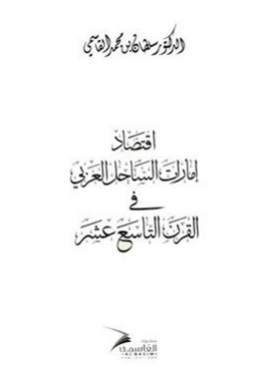 الدكتور سلطان بن محمد القاسمي
اقتصاد
إمارات الساحل العربي
في
القرن التاسع عشر
منشورات
القاسمي
AL QASIMI
PUBLICATIONS